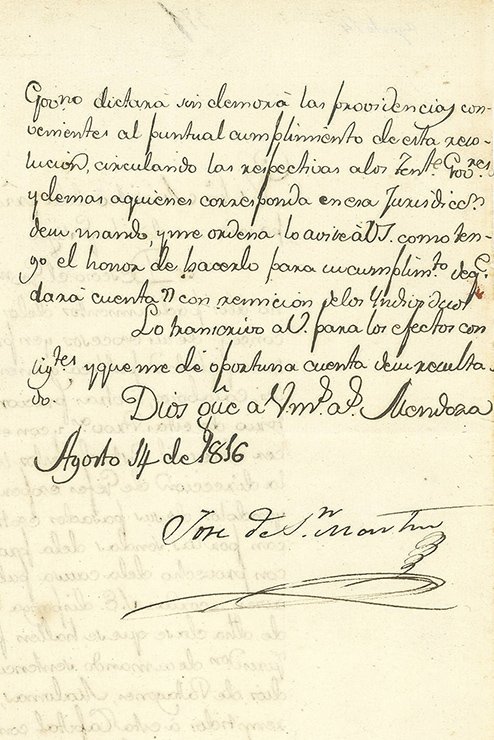 Govno dictará sin demora las providencias con-
venientes al puntual cumplimiento de esta reso-
lucion, circulando las respectivas a los Tente Govres
y demas a quienes corresponda en esa Jurisdiccn
de su mando, y me ordena lo avise á VS. como ten-
go el honor de hacerlo para su cumplimto de qe
dará cuenta con remicion de los Individuos
Lo transcrivo a V. para los efectos con
sigtes, y que me dé oportuna cuenta de su resulta
do.
Dios gue a V. ms. as. Mendoza
Agosto 14 de 1816
Jose de Sn Martin